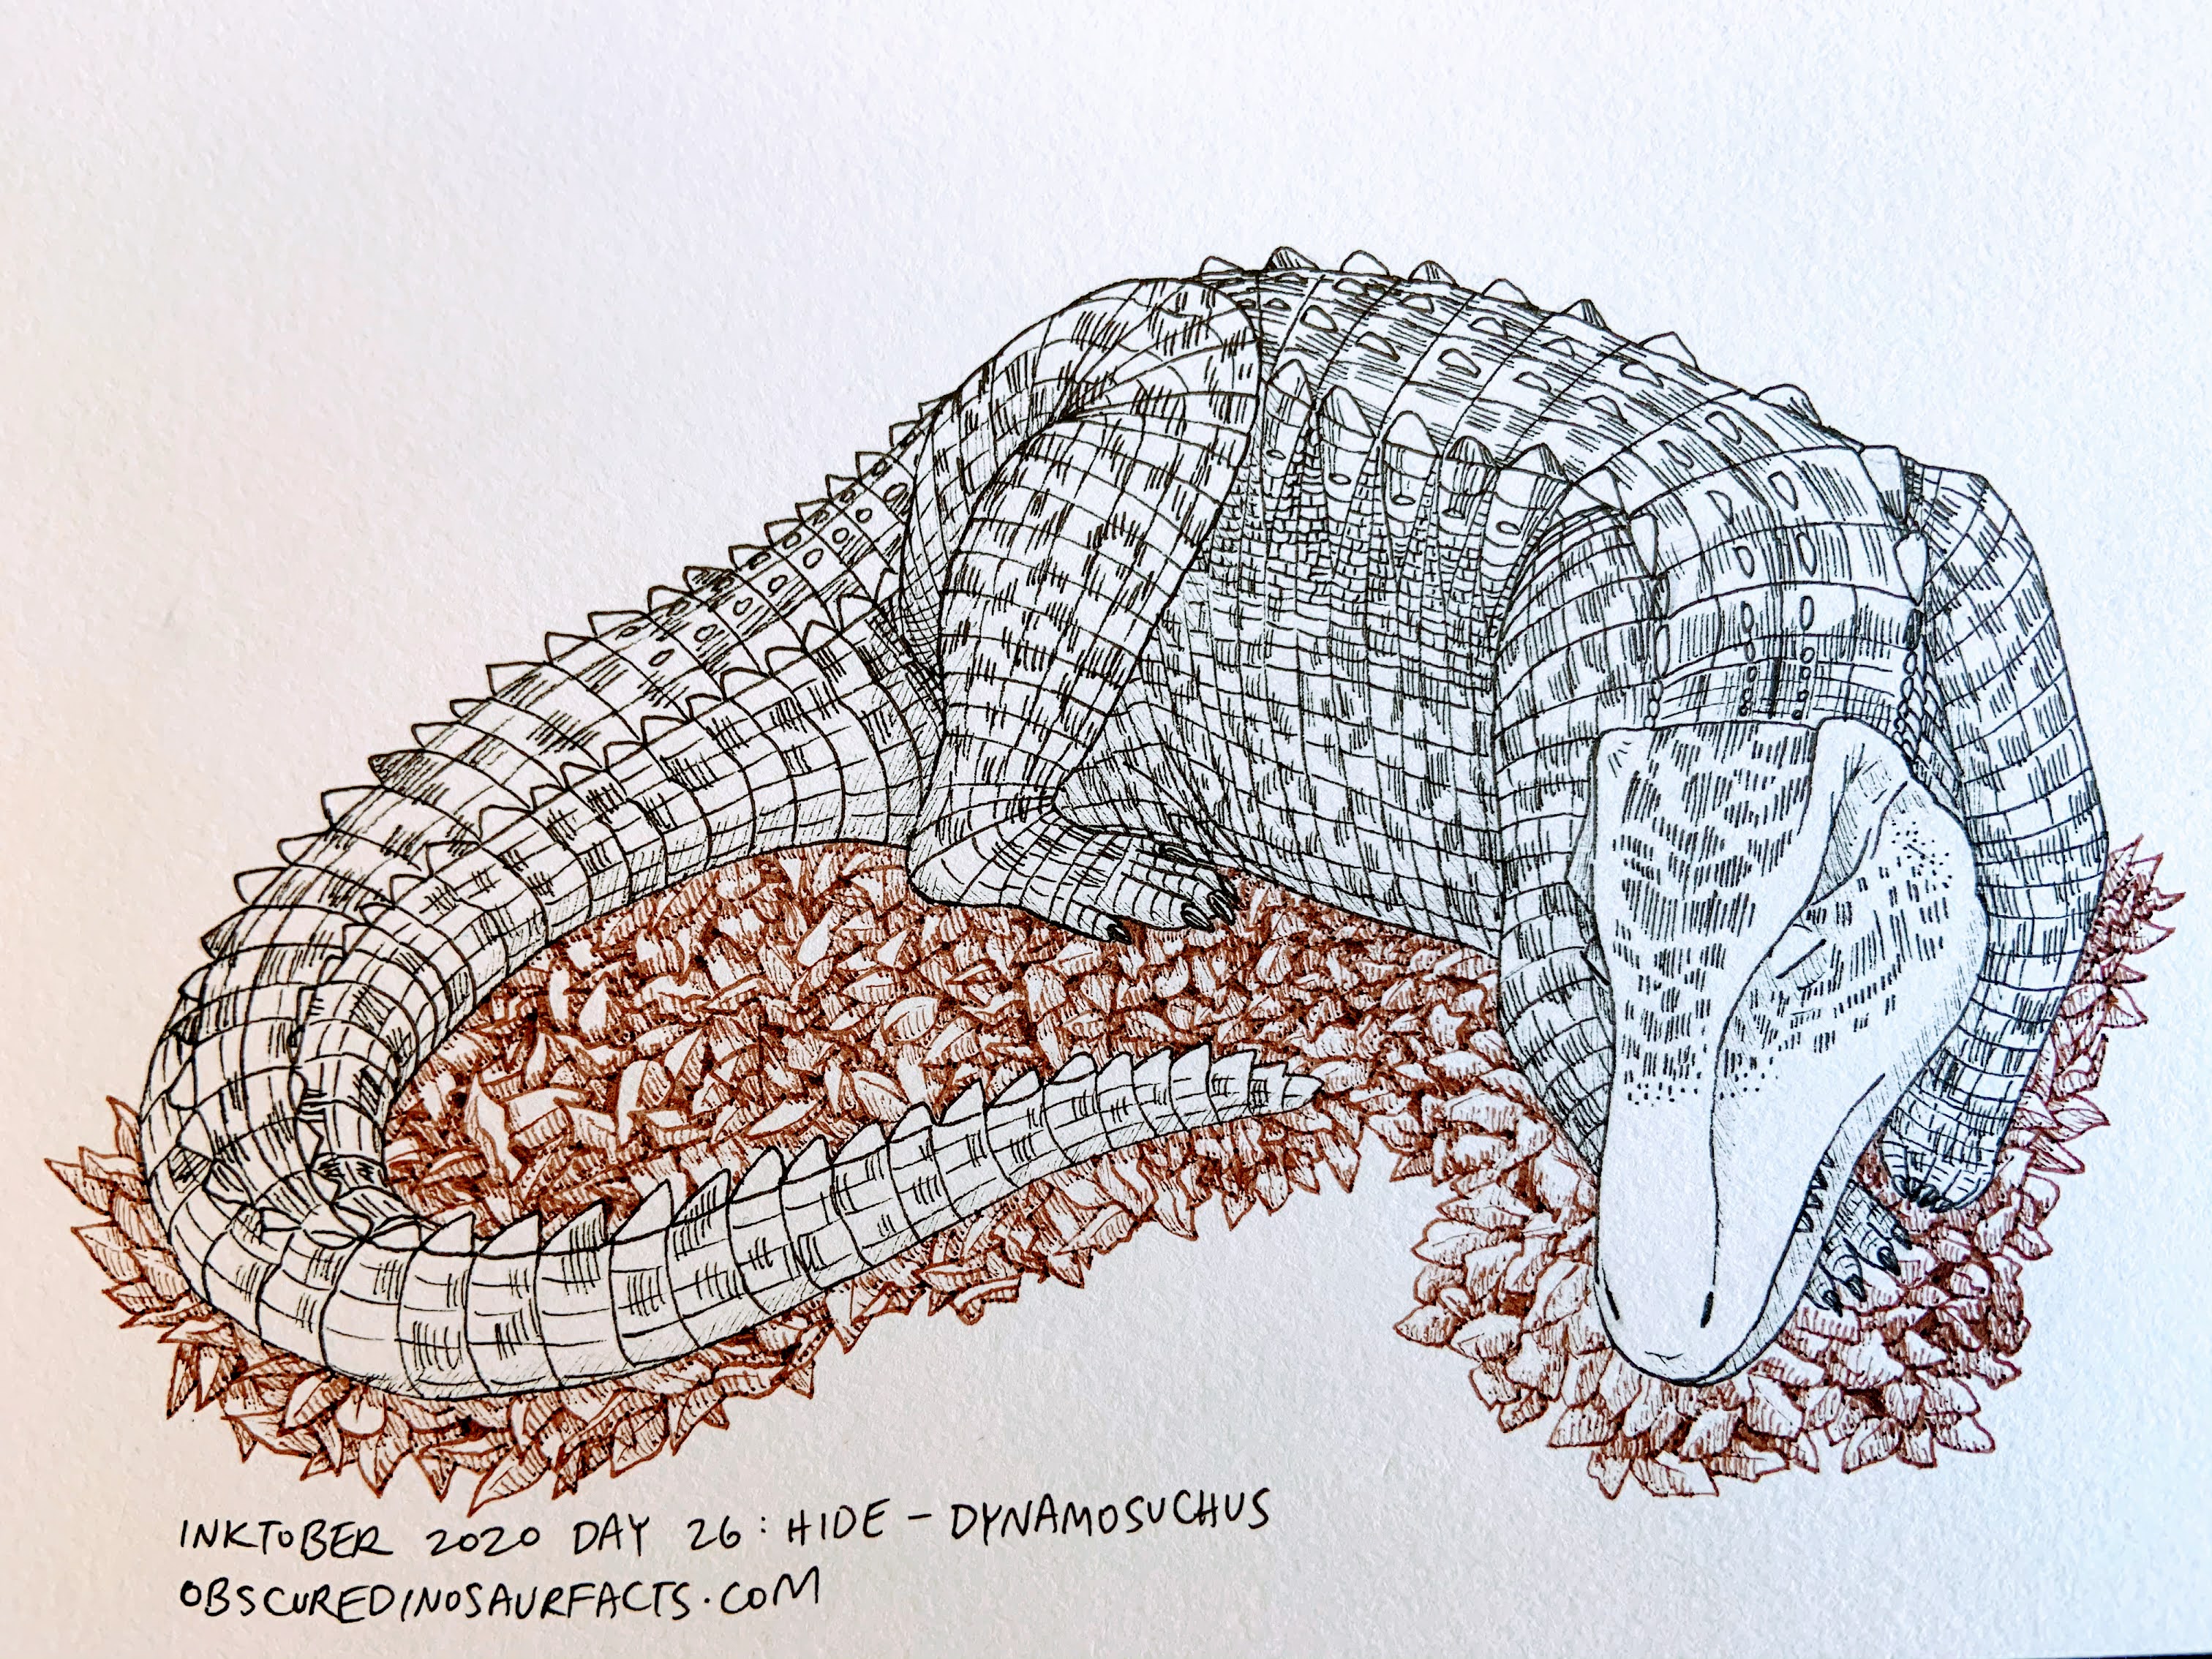 INKTOBER 2020 DAY 26: HIDE - DYNAMOSUCHUS
OBSCUREDINOSAURFACTS.COM